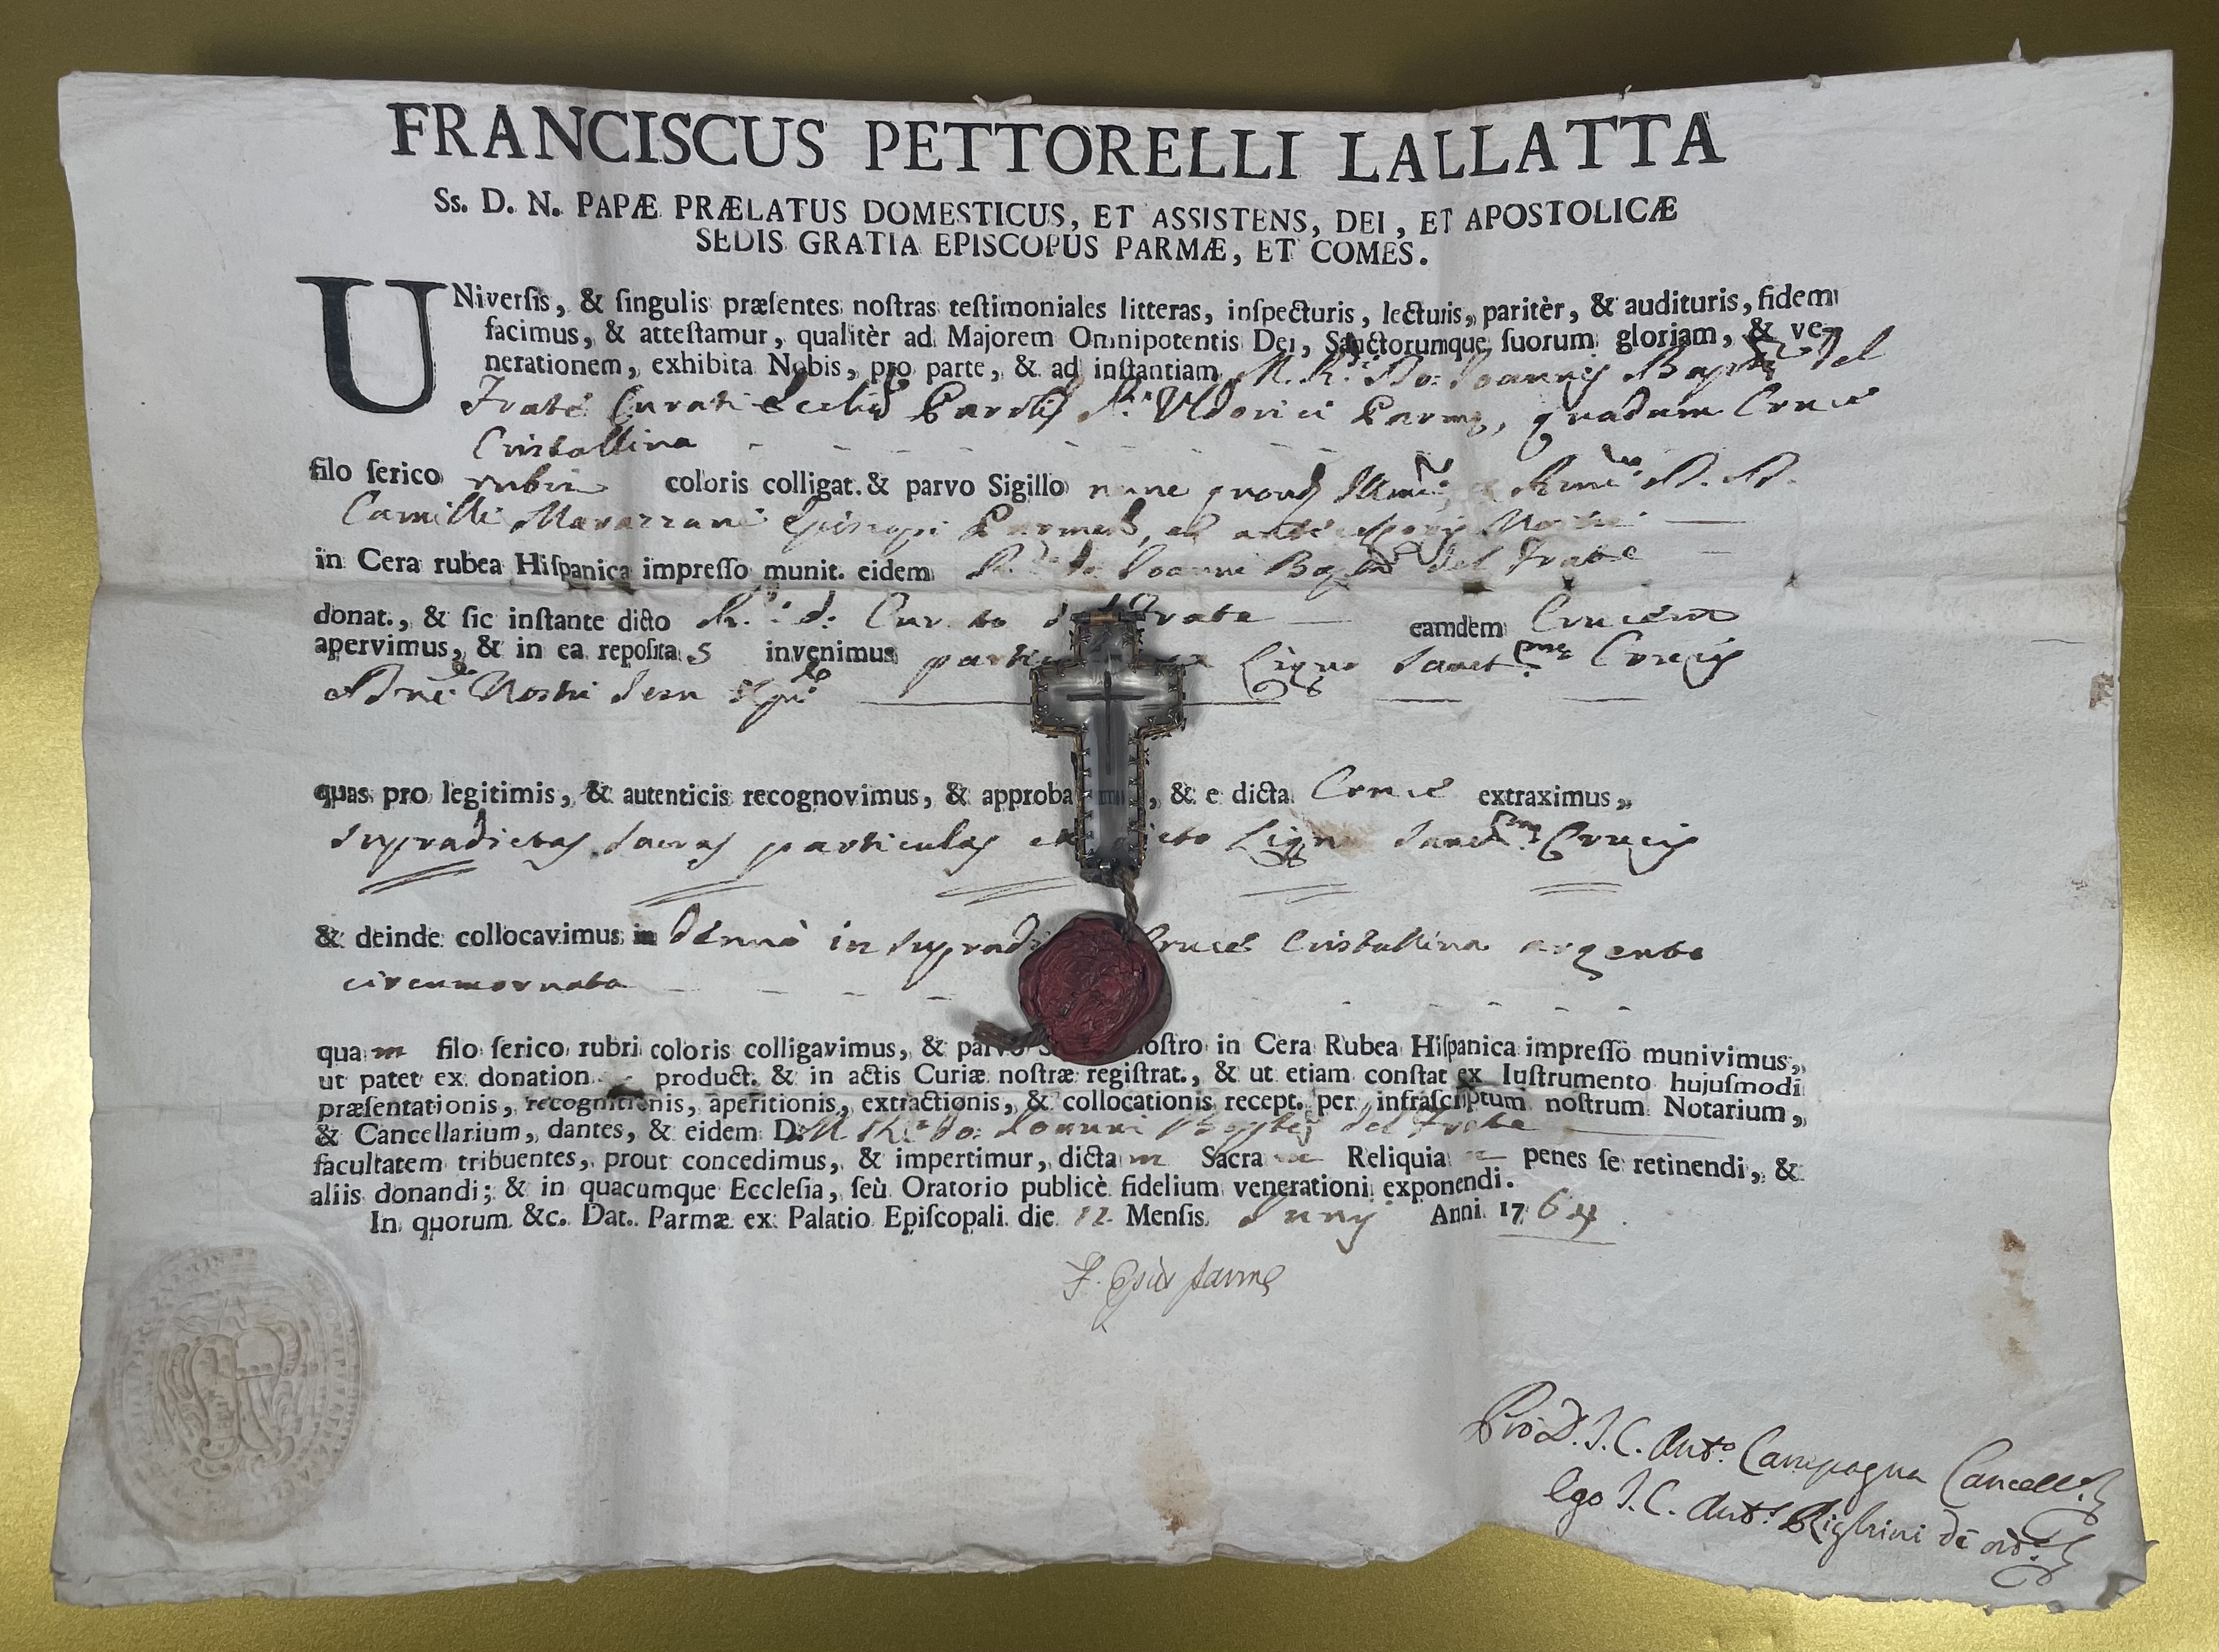 FRANCISCUS PETTORELLI LALLATTA
Ss. D. N. PAPÆ PRÆLATUS DOMESTICUS, ET ASSISTENS, DEI, ET APOSTOLICÆ
SEDIS GRATIA EPISCOPUS PARMÆ, ET COMES.
UNiverſis, & ſingulis præſentes noſtras teſtimoniales litteras, inſpecturis, lecturis, paritèr, & audituris, fidem
facimus, & atteſtamur, qualitèr ad Majorem Omnipotentis Dei, Sanctorumque ſuorum gloriam, & ve-
nerationem, exhibita Nobis, pro parte, & ad inſtantiam M. R. Do: Joannis Bap del
Frate Curati Eccliæ Parolis Sti Uldorici Parmę, quadam Cruce
Cristallina
filo ſerico rubri coloris colligat. & parvo Sigillo nunc quond Illmi & Rmi D. D.
Camilli Marazzani Episcopi Parmens, et antecessoris Nostri
in Cera rubea Hiſpanica impreſſo munit. eidem R. Do Joanni Bap del Frate
donat., & ſic inſtante dicto R. d. Curato del Frate eamdem Crucem
apervimus, & in ea repoſitas invenimus Ligno Sanctmę Crucis
Dni Nostri Jesu Xpi
quas pro legitimis, & autenticis recognovimus, & approba, & e dicta Cruce extraximus,
supradictas sacras particulas ex Ligno Sanctmę Crucis
& deinde collocavimus in denuò in suprad Cruce Cristallina argento
circumornata
quam filo ſerico rubri coloris colligavimus, & parvo noſtro in Cera Rubea Hiſpanica impreſſo munivimus,
ut patet ex donation product. & in actis Curiæ noſtræ regiſtrat., & ut etiam conſtat ex Iuſtrumento hujuſmodi
præſentationis, recognitionis, aperitionis, extractionis, & collocationis recept. per infraſcriptum noſtrum Notarium,
& Cancellarium, dantes, & eidem D. M. R. do: Joanni Bap del Frate
facultatem tribuentes, prout concedimus, & impertimur, dictam Sacram Reliquiam penes ſe retinendi, &
aliis donandi; & in quacumque Eccleſia, ſeù Oratorio publicè fidelium venerationi exponendi.
In quorum &c. Dat. Parmæ ex Palatio Epiſcopali die 12 Menſis Junij Anni 1764
F. Epüs Parmę
Pro D. J. C. Anto. Campagna Cancell.
Ego J. C. Ants. Righini de